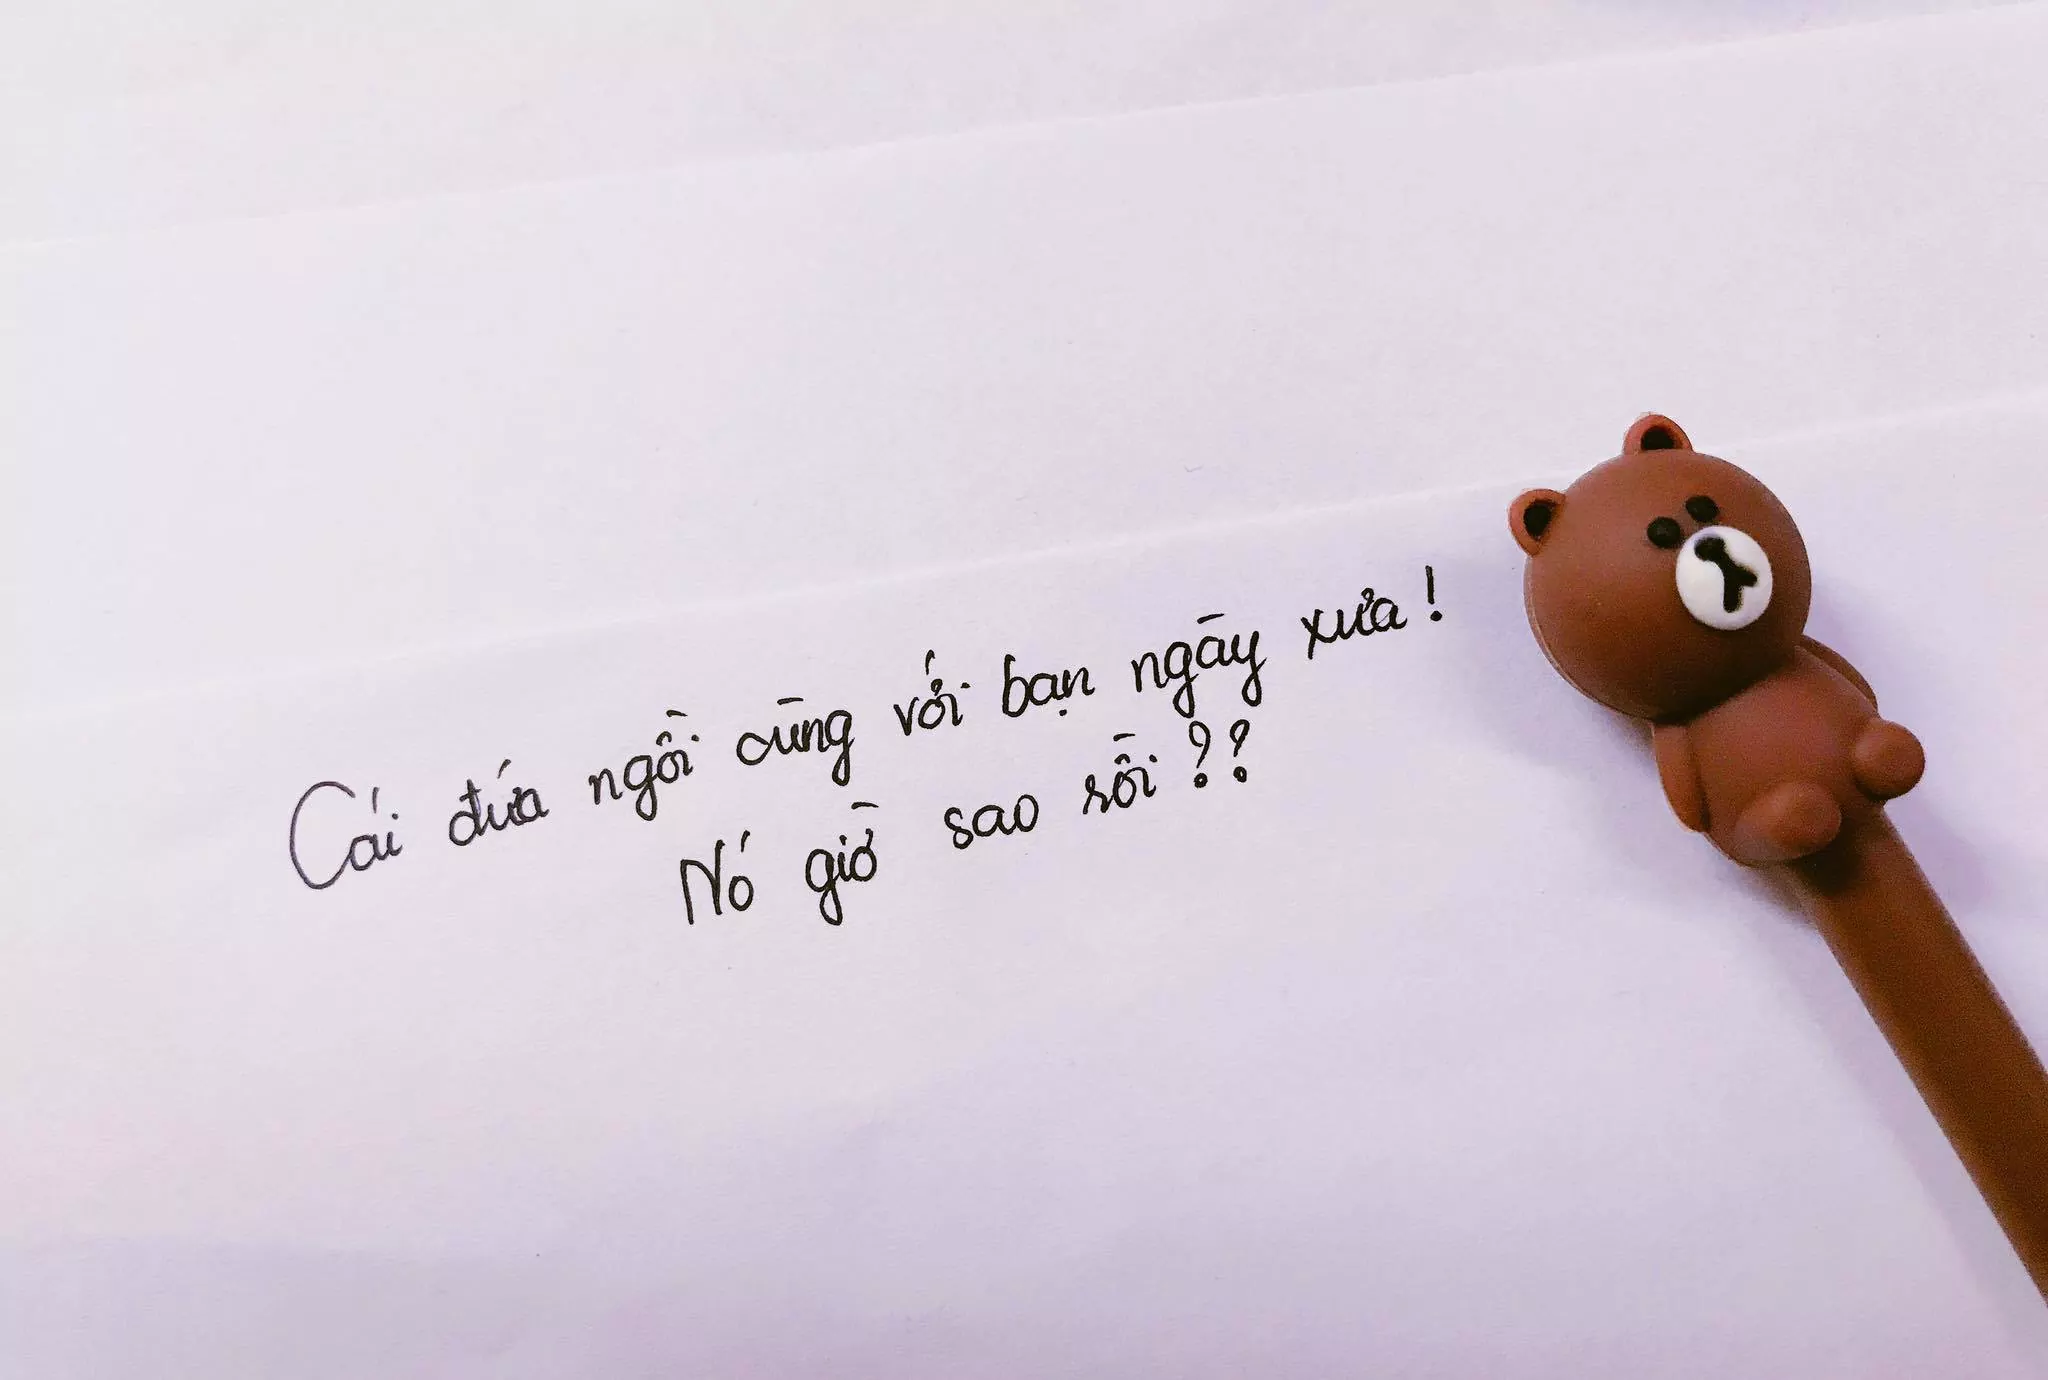 Cái đứa ngồi cùng với bạn ngày xưa!
Nó giờ sao rồi??